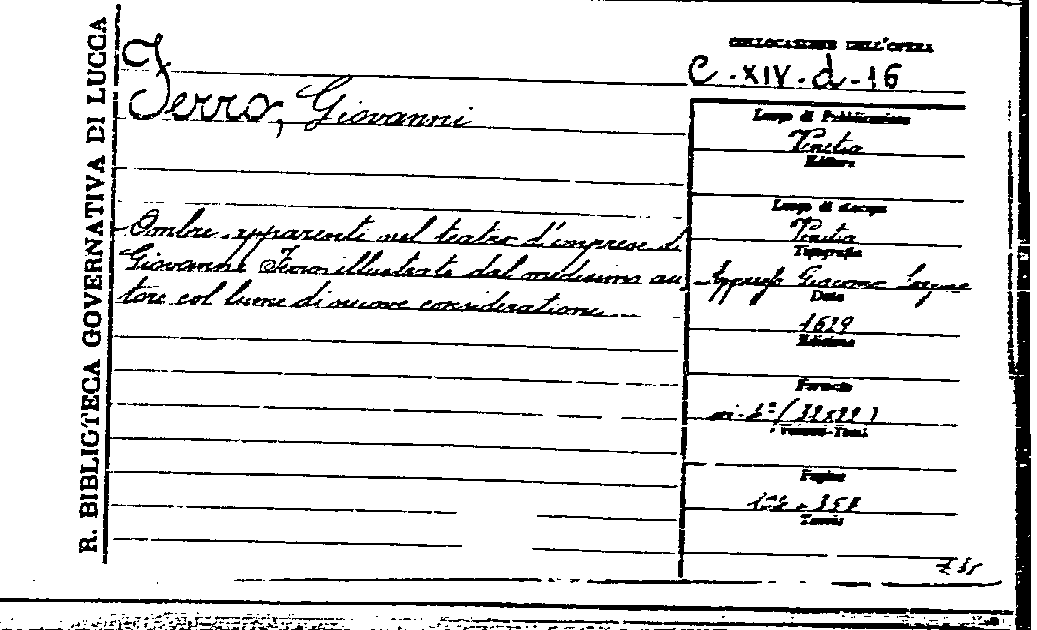 R. BIBLIOTECA GOVERNATIVA DI LUCCA
COLLOCAZIONE DELL'OPERA
C.XIV.d.16
Ferro, Giovanni
Ombre apparenti nel teatro d'imprese di
Giovanni Ferro illustrate dal medesimo au
tore col lume di nuove considerationi
Luogo di Pubblicazione
Venetia
Editore
Luogo di stampa
Venetia
Tipografia
Appresso Giacomo
Data
1629
Edizione
Formato
in-
Volumi-Tomi
Pagine
Tavole